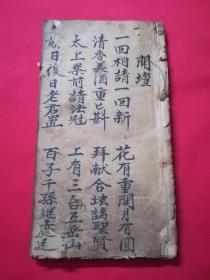 開壇
一回相請一回新 花有重開月有圓
清香美酒重匕斟 拜献合坛諸聖賢
太上案前請法冠 上有三台五岳山
日後日老君置 百子千孫継